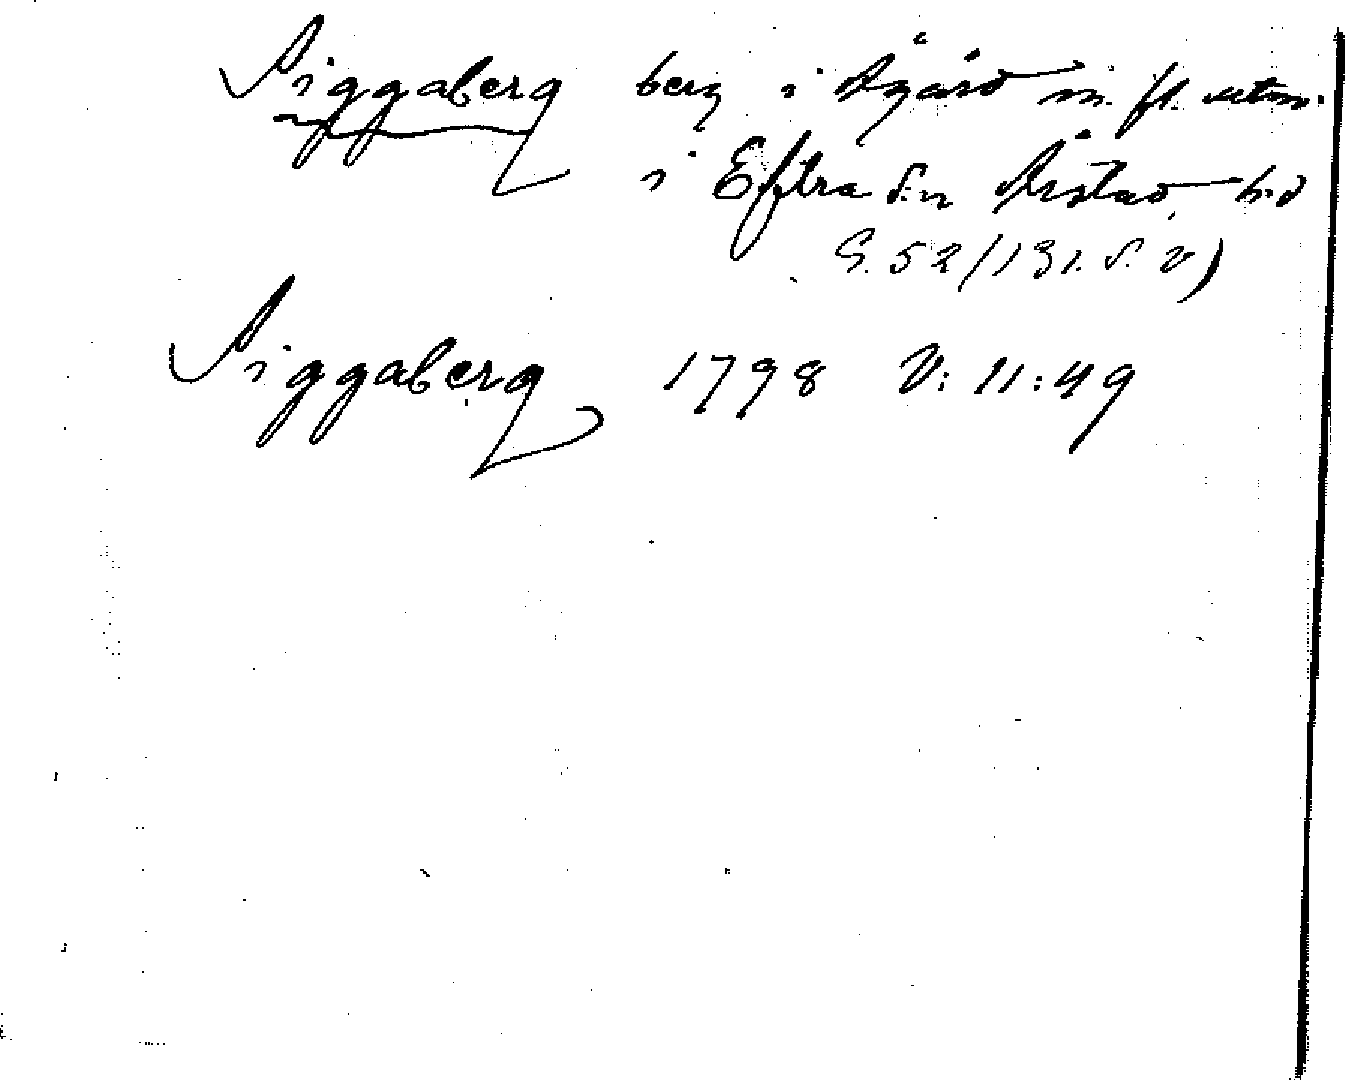 Siggaberg berg i Ågård m. fl. utm.
i Eftra s:n Årstad h:d
G. 52/131. S. v)
Siggaberg 1798 V: 11:49